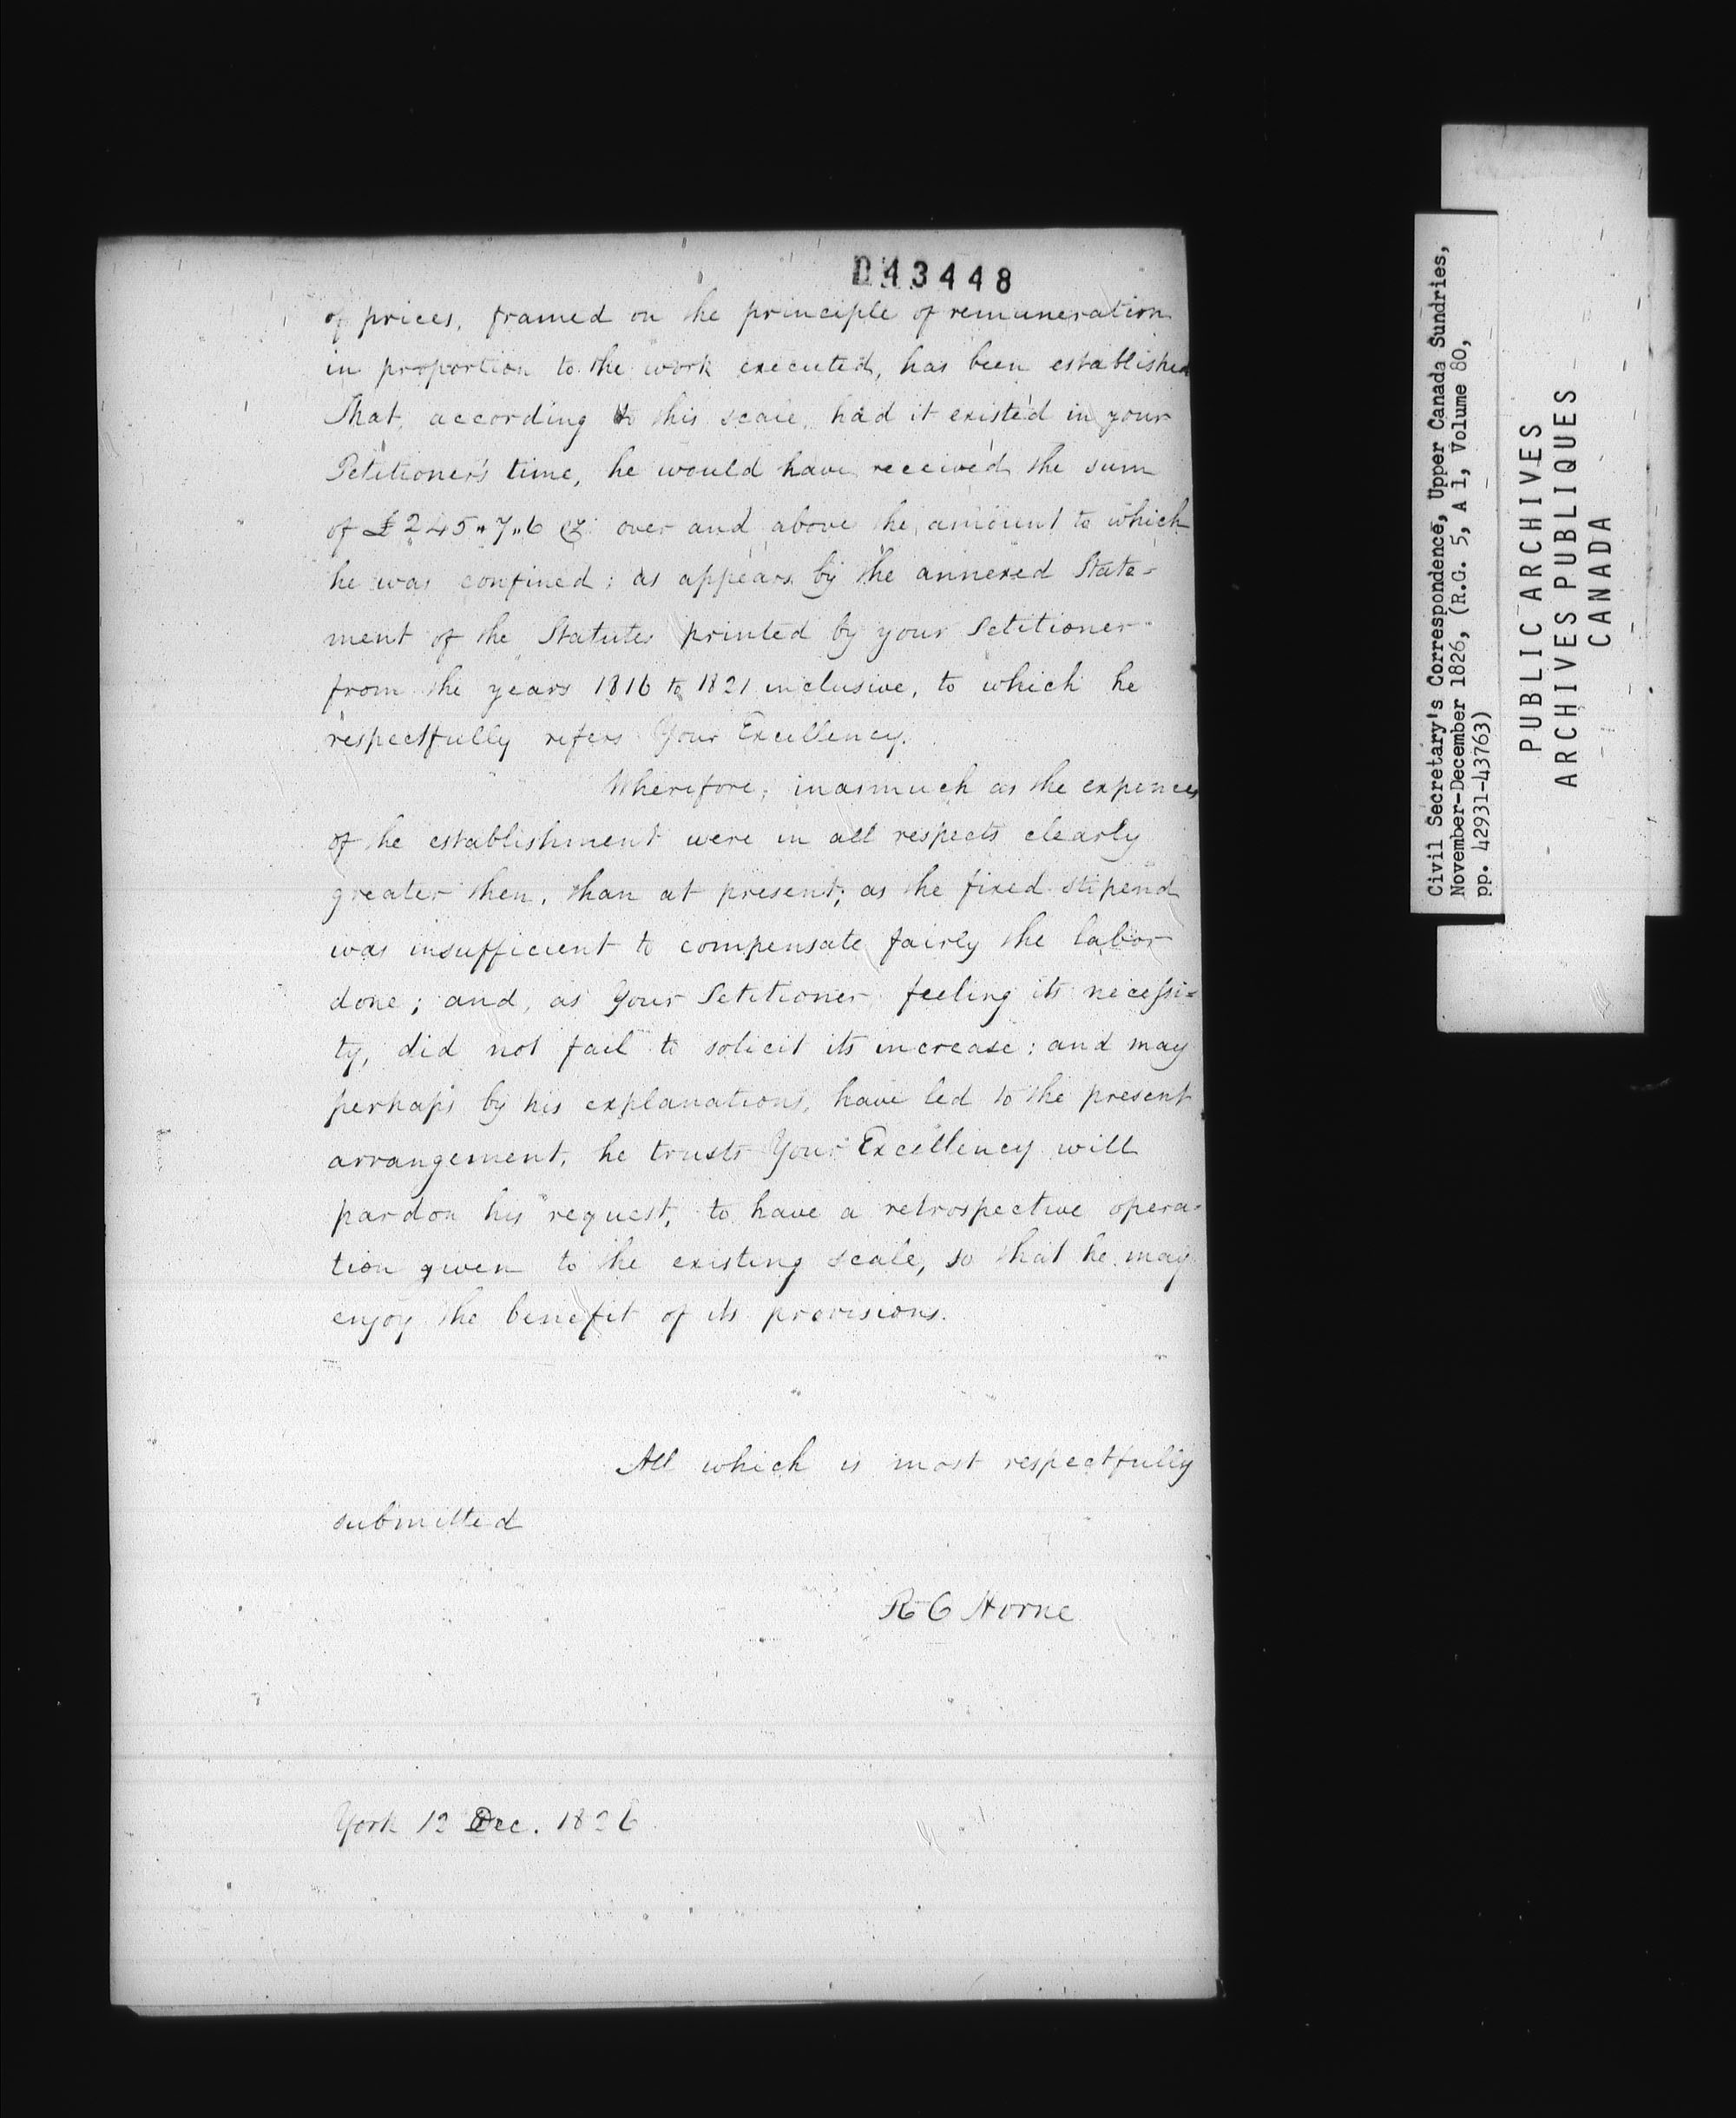 D43448
of prices, framed on the principle of remuneration
in proportion to the work executed, has been established
That, according to this scale, had it existed in your
Petitioner's time, he would have received the sum
of £245„7„6 over and above the amount to which
he was confined: as appears by the annexed State-
ment of the Statutes printed by your Petitioner
from the years 1816 to 1821 inclusive, to which he
respectfully refers Your Excellency.
Wherefore, inasmuch as the expences
of the establishment were in all respects clearly
greater then, than at present; as the fixed stipend
was insufficient to compensate fairly the labor
done; and, as Your Petitioner feeling its necessi-
ty, did not fail to solicit its increase: and may
perhaps by his explanations, have led to the present
arrangement, he trusts Your Excellency will
pardon his request, to have a retrospective opera-
tion given to the existing scale, so that he may
enjoy the benefit of its provisions.
All which is most respectfully
submitted
R C Horne
York 12 Dec. 1826
Civil Secretary's Correspondence, Upper Canada Sundries,
November-December 1826, (R.G. 5, A 1, Volume 80,
pp. 42931-43763)
PUBLIC ARCHIVES
ARCHIVES PUBLIQUES
CANADA